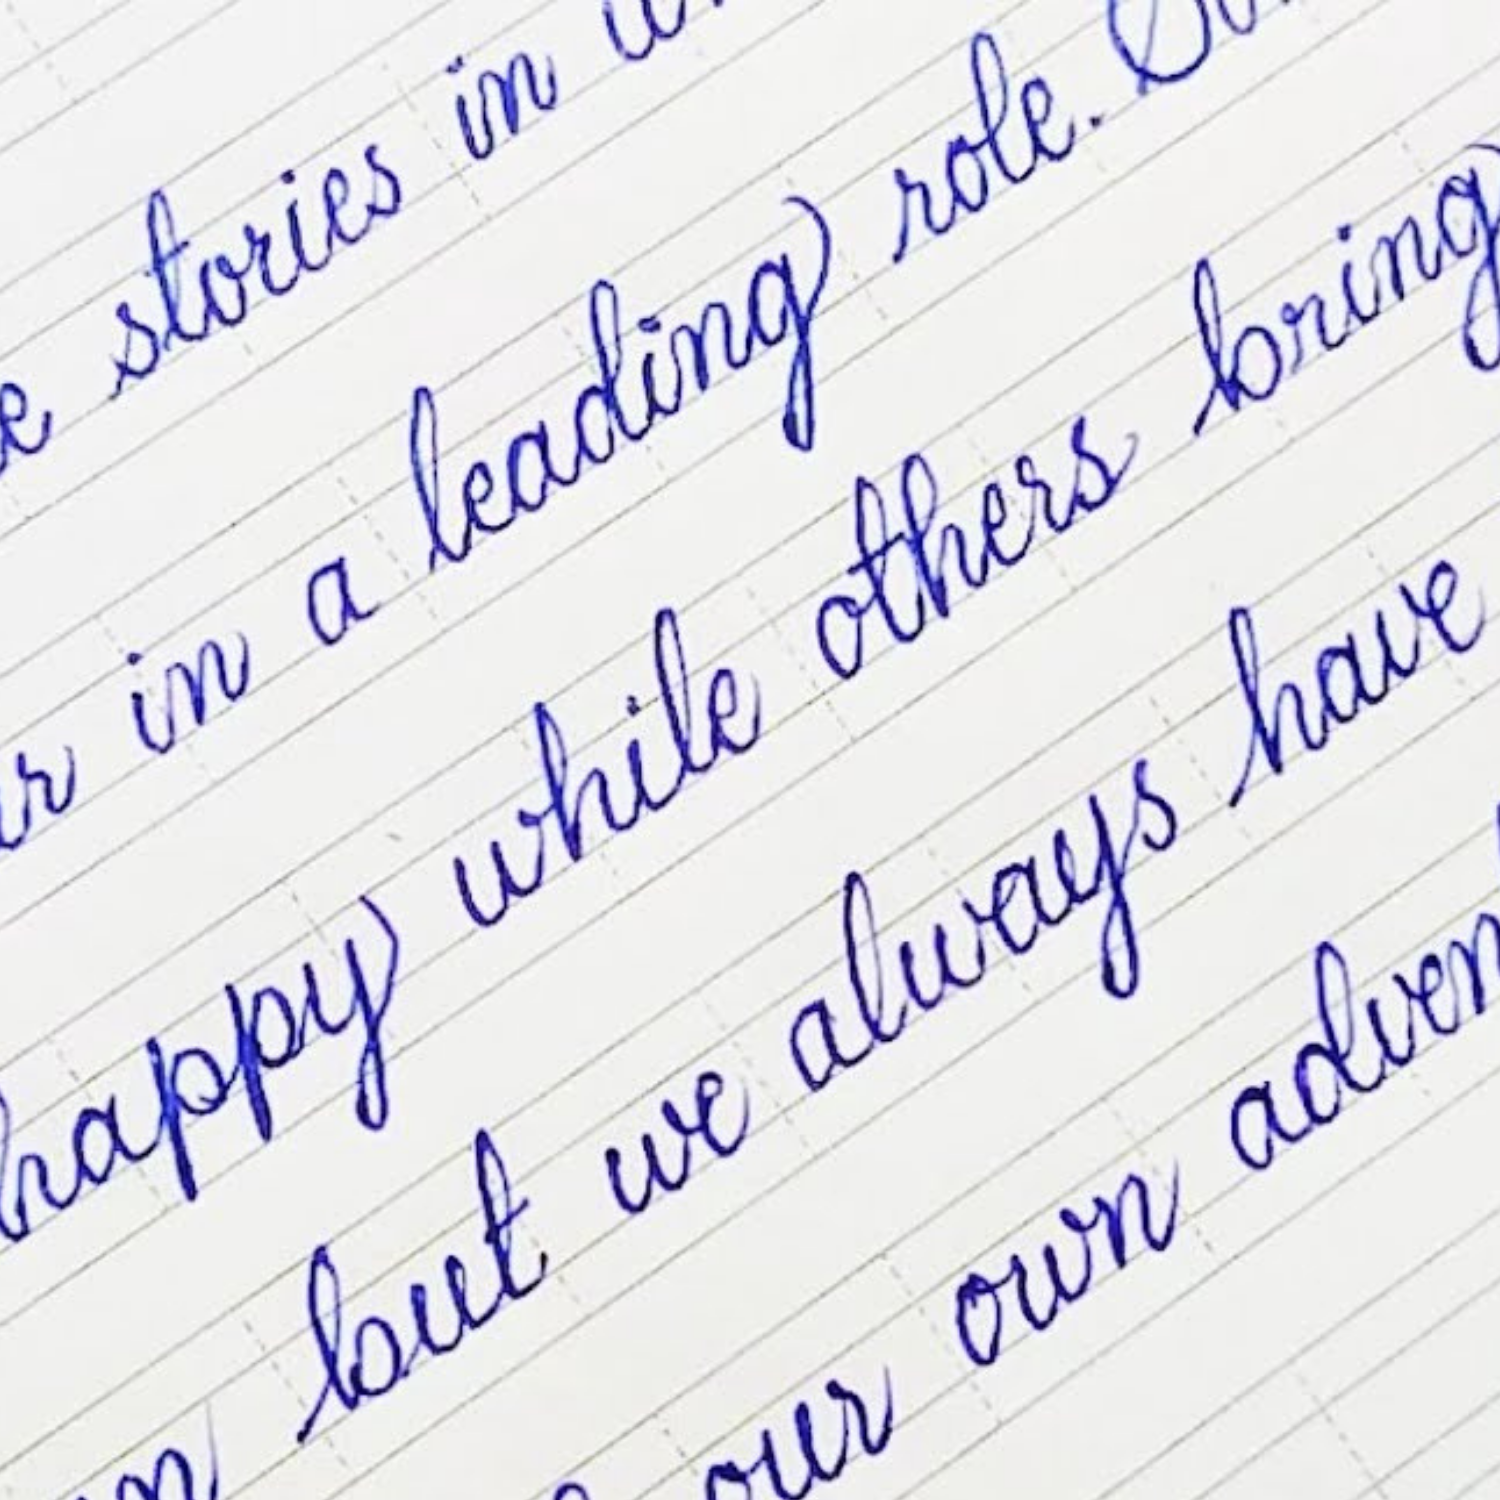 stories in
in a leading role.
happy while others bring
but we always have
our own